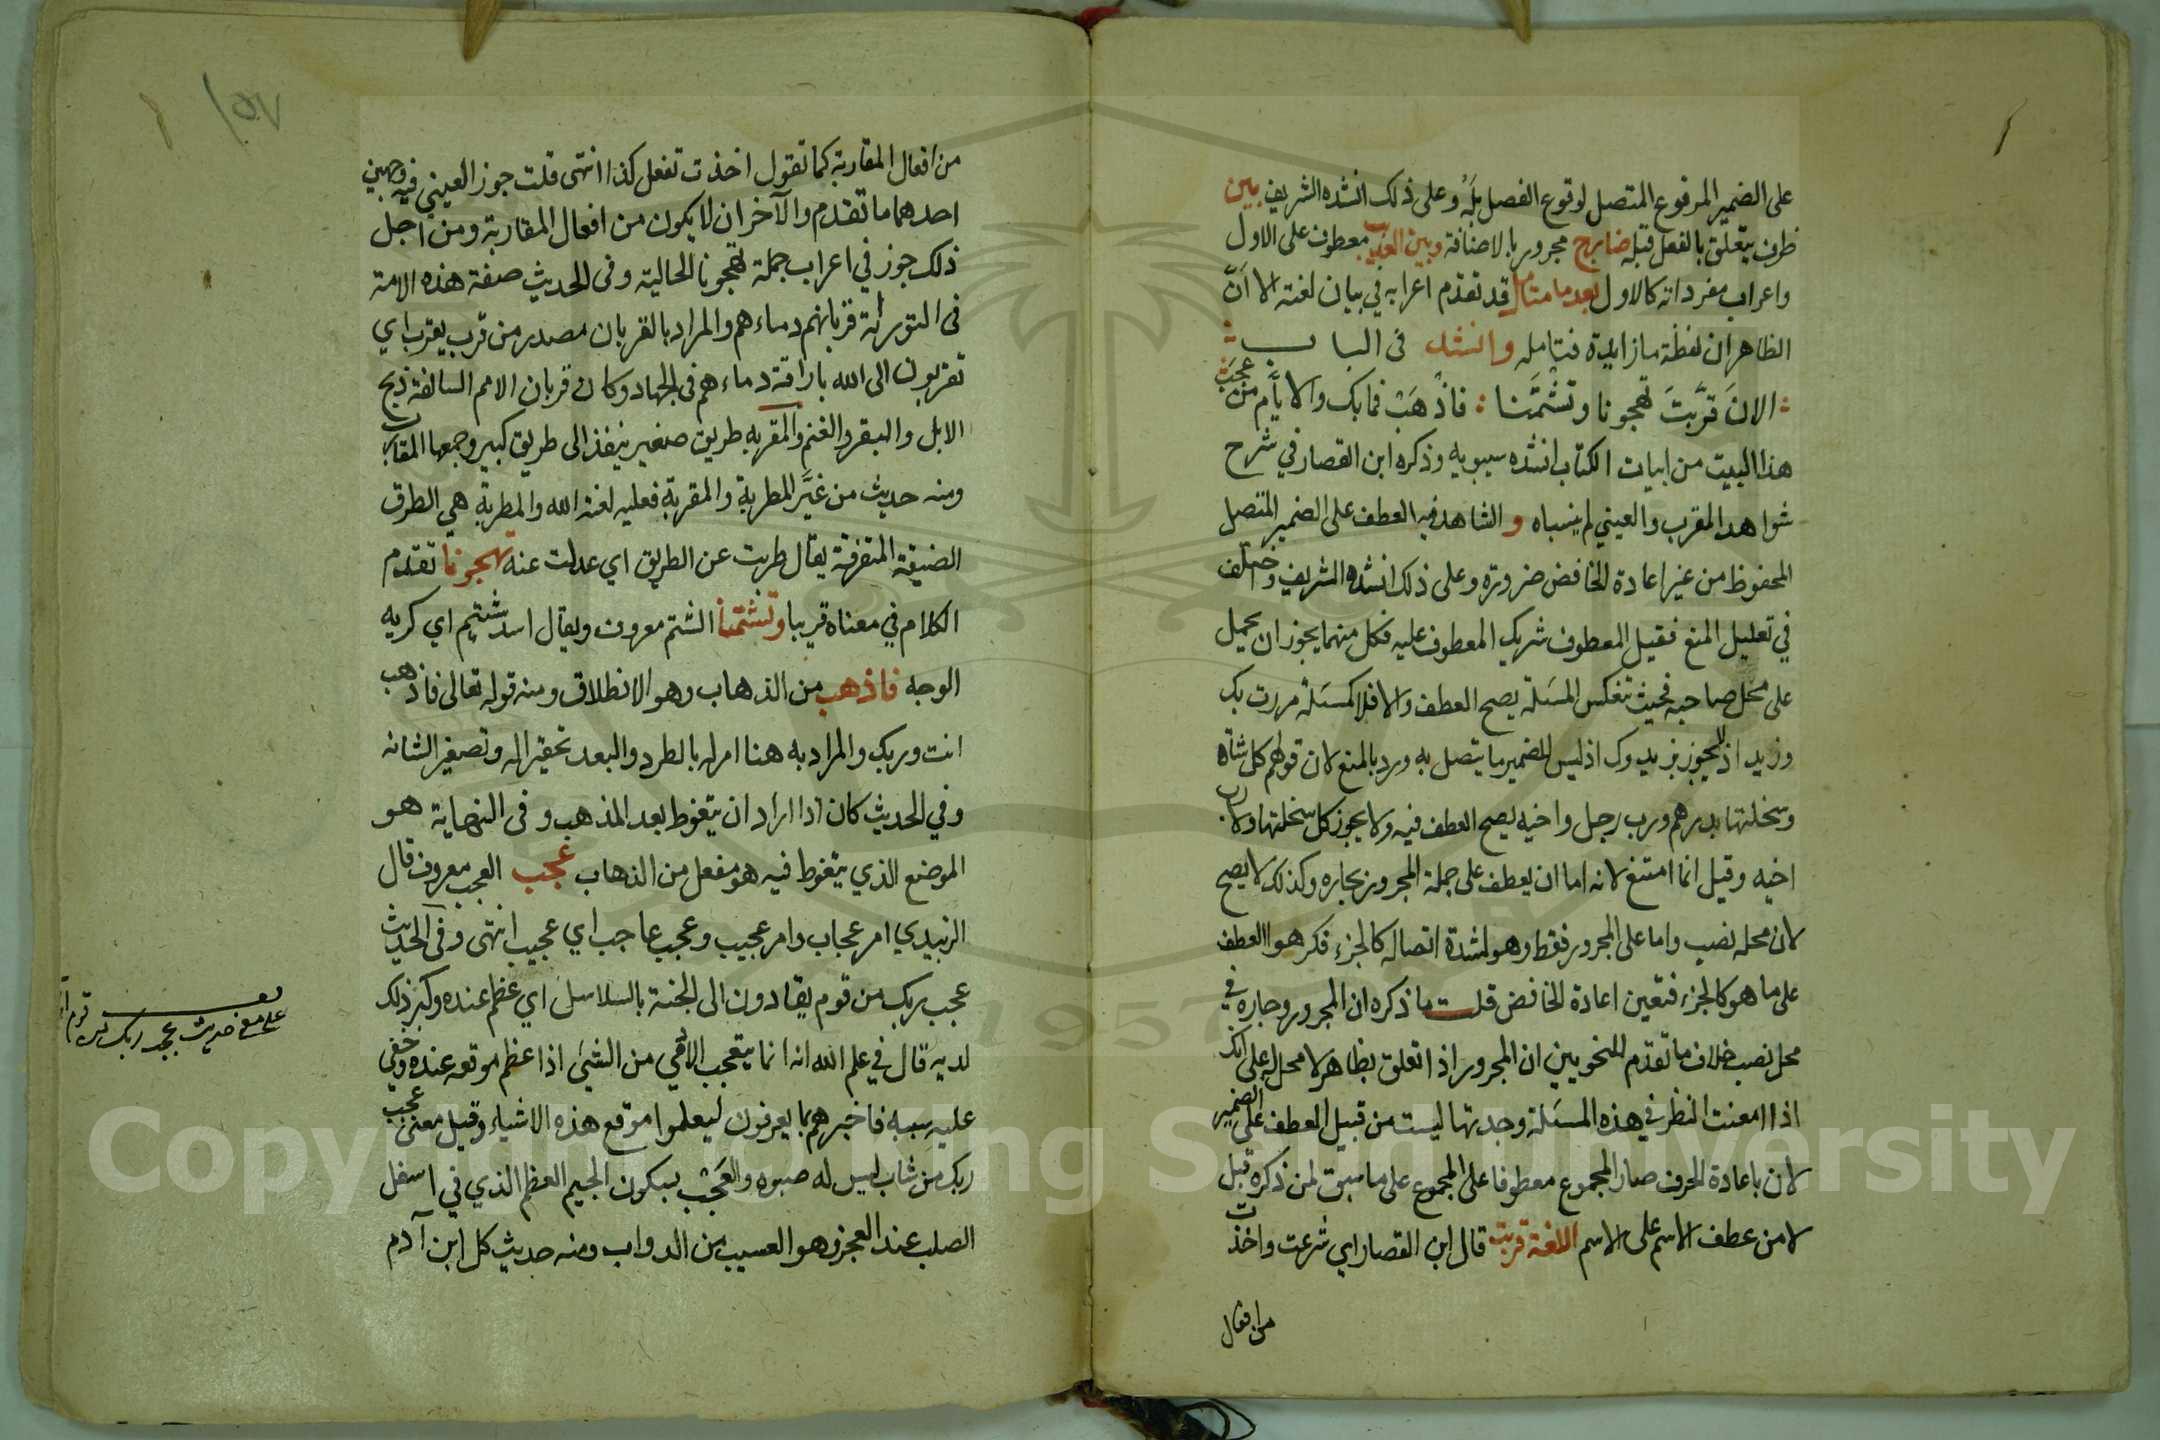 على الضمير المرفوع المتصل لوقوع الفصل بله وعلى ذلك انشده الشريف بين
ظرف يتعلق بالفعل قبله ضارج مجرور بالاضافة وبين العذيب معطوف على الاول
واعراب مفرداته كالاول بعد ما متامل قد تقدم اعرابه في بيان لغته الا انّ
الظاهر ان لفظة ما زايدة فتامله وانشد في الباب
الان قرّبتَ تهجونا وتشتمَنا فاذْهَبْ فما بك والايّام من عجَب
هذا البيت من ابيات الكتاب انشده سيبويه وذكره ابن القصار في شرح
شواهد المقرب والعيني لم ينسباه و الشاهد فيه العطف على الضمير المتصل
المخفوظ من غير اعادة الخافض ضرورة وعلى ذلك انشده الشريف واختلف
في تعليل المنع فقيل المعطوف شريك المعطوف عليه فكل منهما يجوز ان يحمل
على محل صاحبه فحيث تنعكس المسئلة يصح العطف والا فلا كمسئلة مررت بك
وزيد اذ لا يجوز بزيد وك اذ ليس للضمير ما يتصل به ورد بالمنع لان قولهم كل شاة
وسخلتها بدرهم ورب رجل واخيه يصح العطف فيه ولا يجوز كل سخلتها ولا رب
اخيه وقيل انما امتنع لانه اما ان يعطف على جملة المجرور بجاره وكذلك لا يصح
لان محله نصب واما على المجرور فقط وهو لشدة اتصاله كالجزء فكرهوا العطف
على ما هو كالجزء فتعين اعادة الخافض قلت ما ذكره ان المجرور وجاره في
محل نصب خلاف ما تقدم للنحويين ان المجرور اذا تعلق بظاهر لا محل له على انك
اذا امعنت النظر في هذه المسئلة وجدتها ليست من قبيل العطف على الضمير
لان باعادة الحرف صار المجموع معطوفا على المجموع على ما سبق لمن ذكره قبل
لا من عطف الاسم على الاسم اللغة قربت قال ابن القصار اي شرعت واخذت
من افعال
من افعال المقاربة كما تقول اخذت تفعل كذا انتهى قلت جوز العيني فيه وجهين
احدهما ما تقدم والآخر ان لا يكون من افعال المقاربة ومن اجل
ذلك جوز في اعراب جملة تهجونا الحالية وفي الحديث صفة هذه الامة
في التوراة قربانهم دماءهم والمراد بالقربان مصدر من قرب يقرب اي
تقربون الى الله باراقة دماءهم في الجهاد وكان قربان الامم السالفة ذبح
الابل والبقر والغنم والمقربه طريق صغير ينفذ الى طريق كبير وجمعها المقارب
ومنه حديث من غيَّر المطربة والمقربة فعليه لعنة الله والمطربة هي الطرق
الضيقة المتفرقة يقال طربت عن الطريق اي عدلت عنه تهجونا تقدم
الكلام في معناه قريبا وتشتمنا الشتم معروف ويقال اسد شتيم اي كريه
الوجه فاذهب من الذهاب وهو الانطلاق ومنه قوله تعالى فاذهب
انت وربك والمراد به هنا امر له بالطرد والبعد تحقيرا له وتصغير الشانه
وفي الحديث كان اذا اراد ان يتغوط بعد المذهب وفي النهاية هو
الموضع الذي يتغوط فيه هو مفعل من الذهاب عجب العجب معروف قال
الزبيدي امر عجاب وامر عجيب وعجب عاجب اي عجيب انتهى وفي الحديث
عجب ربك من قوم يقادون الى الجنة بالسلاسل اي عظم عنده وكبر ذلك
لديه قال في علم الله انه انما يتعجب الادمي من الشيء اذا عظم موقعه عنده وخفي
عليه سببه فاخبرهم بما يعرفون ليعلموا موقع هذه الاشياء وقيل معنى عجب
ربك من شاب ليس له صبوه والعَجْب بسكون الجيم العظم الذي في اسفل
الصلب عند العجز وهو العسيب من الدواب ومنه حديث كل ابن آدم
على معنى حديث عجب ربك من قوم
Copyright © King Saud University
1957